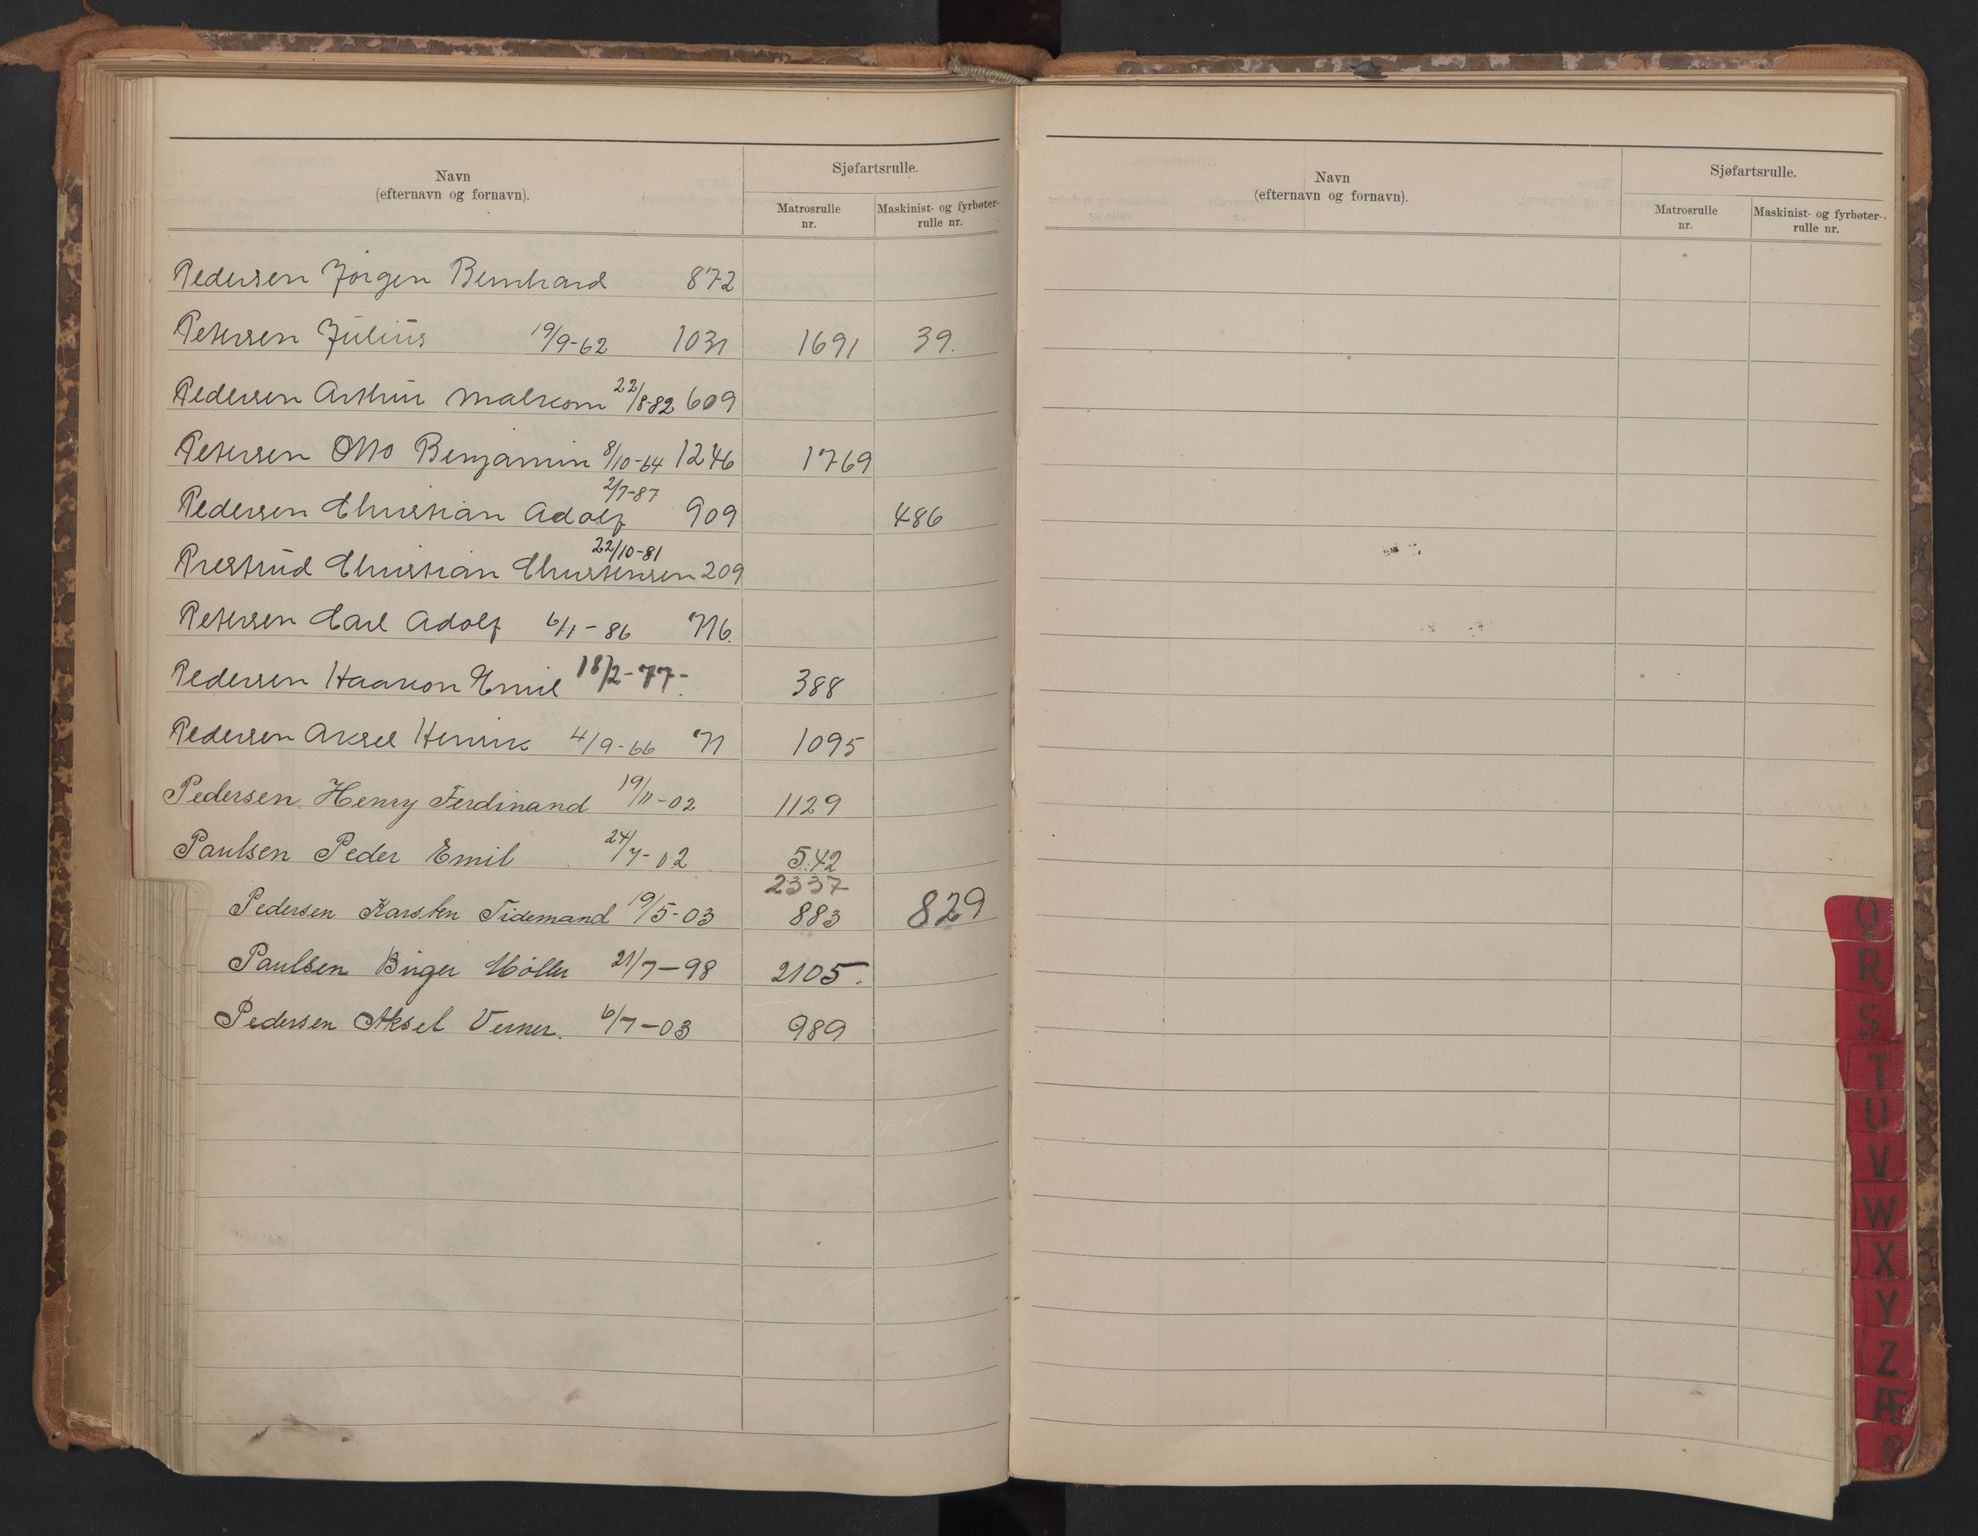 Navn
(efternavn og fornavn).
Sjøfartsrulle.
Matrosrulle nr.
Maskinist- og fyrbøter-rulle nr.
Pedersen Jörgen Bernhard 872
Petersen Julius 19/9-62 1031 1691 39.
Pedersen Arthur Malkom 22/8-82 609
Petersen Otto Benjamin 8/10-64 1246 1769
Pedersen Christian Adolf 2/7-87 909 486
Prestrud Christian Christensen 22/10-81 209
Petersen Carl Adolf 6/1-86 716.
Pedersen Haakon Emil 18/2-77- 388
Pedersen Aksel Henrik 4/9-66 71 1095
Pedersen Henry Ferdinand 19/11-02 1129
Paulsen Peder Emil 24/7-02 542
2337
Pedersen Karsten Tidemand 19/5-03 883 829
Paulsen Birger Möller 21/7-98 2105.
Pedersen Aksel Verner. 6/7-03 989
Navn
(efternavn og fornavn).
Sjøfartsrulle.
Matrosrulle nr.
Maskinist- og fyrbøter-rulle nr.
Q
R
S
T
U
V
W
X
Y
Z
Æ
Ø